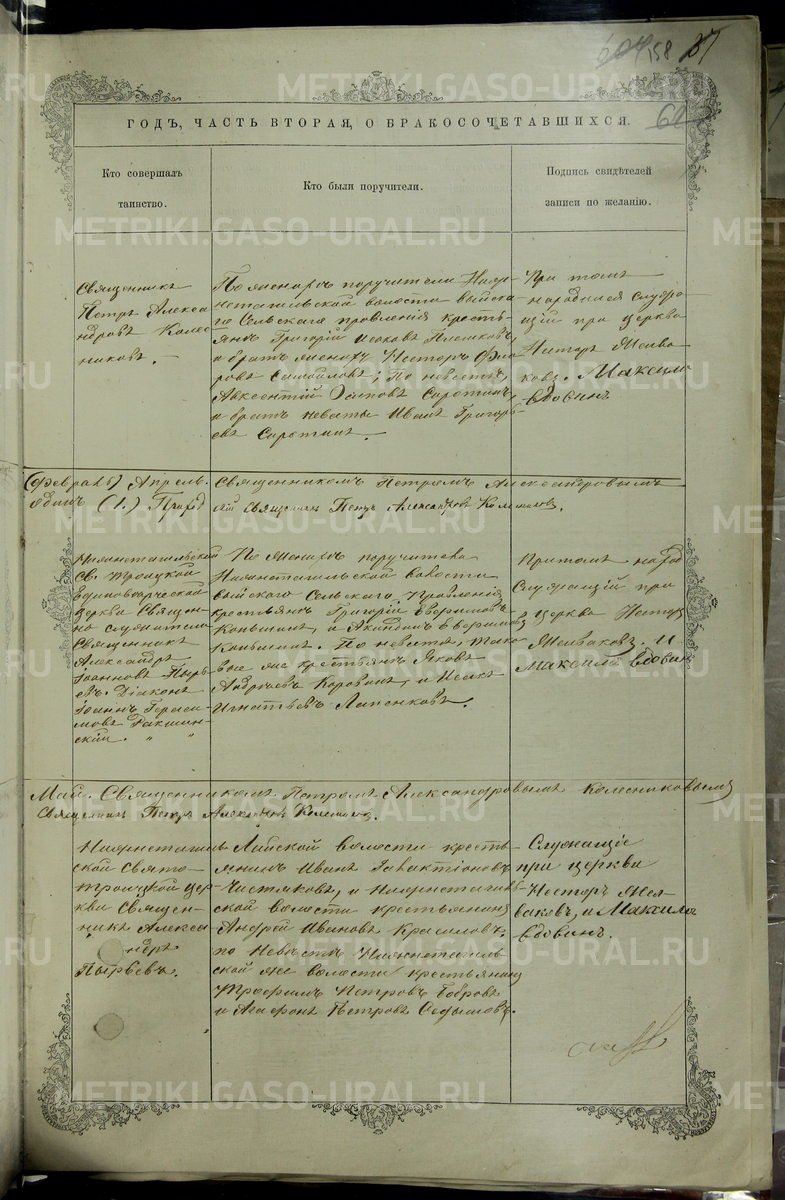 158 37
62
ГОДЪ, ЧАСТЬ ВТОРАЯ, О БРАКОСОЧЕТАВШИХСЯ.
Кто совершалъ
таинство.
Кто были поручители.
Подпись свидѣтелей
записи по желанію.
Священникъ
Петръ Алекса
ндровъ Колес
никовъ.
По женихѣ поручители Ниж
нетагильской волости Выйска
го Сельскаго правленія кресть
янъ Григорій
и братъ женихъ Несторъ
ровъ Самойловъ; По невестѣ
Авксентій Сиротинъ,
и братъ невесты Иванъ Григорь
евъ Сиротинъ.
При томъ
находился служа
щій при церкви
Нестеръ Желва
ковъ. Максим
Вдовинъ
(Февраль) Апрель. Священникомъ Петромъ Александровымъ
единъ (1.) Приход
Священникъ Петръ Александровъ Колесниковъ.
Нижнетагильской
Св. Троицкой
Единоверческой
церкви Священ
но служители
Священникъ
Александръ
Іоанновъ Пырь
евъ. Діаконъ
Іоаннъ Гераси
мовъ
скій. " "
По Женихѣ поручители
Нижнетагильской волости
Выйскаго Сельскаго Правленія
крестьянъ Григорій Ефремовъ
Коньшинъ, и Акиндинъ Ефремовъ
Коньшинъ. По невестѣ, тако
вые же крестьянъ Яковъ
Андреевъ Коровинъ, и Исакъ
Игнатьевъ Лапенковъ.
Притомъ
Служащій при
церкви Нестеръ
Желваковъ. И
Максимъ Вдовин
Май. Священникомъ Петромъ Александровымъ Колесниковымъ
Священникъ Петръ Александровъ Колесниковъ.
Нижнетагиль
ской Свято
троицкой цер
кви Священ
никъ Алекса
ндръ
Пырьевъ.
Лайской волости кресть
янинъ Иванъ Галактіоновъ
Чистяковъ, и Нижнетагиль
ской волости крестьянинъ
Андрей Ивановъ Красиловъ;
по Невѣстѣ Нижнетагиль
ской же волости крестьянинъ
Трофимъ Петровъ Бобровъ
и Агафонъ Петровъ Седышовъ.
Служащіе
при церкви
Несторъ Жел
ваковъ, и Максимъ
Вдовинъ.
METRIKI.GASO-URAL.RU